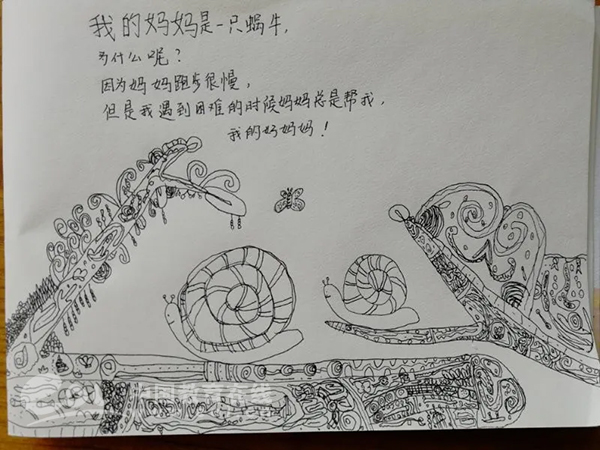 我的妈妈是一只蜗牛,
为什么呢?
因为妈妈跑步很慢,
但是我遇到困难的时候妈妈总是帮我,
我的好妈妈!